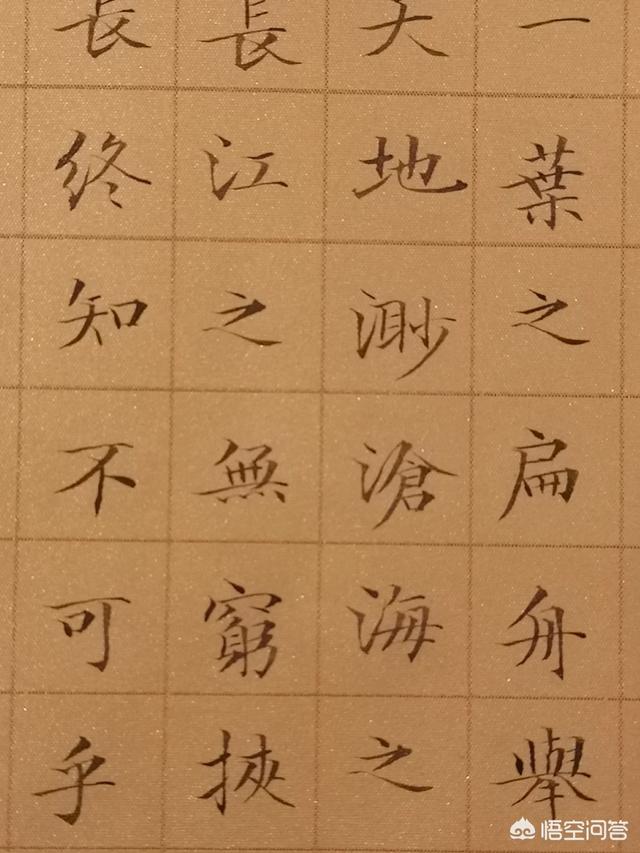 一葉之扁舟舉
天地渺滄海之
長江之無窮挾
長終知不可乎
悟空问答